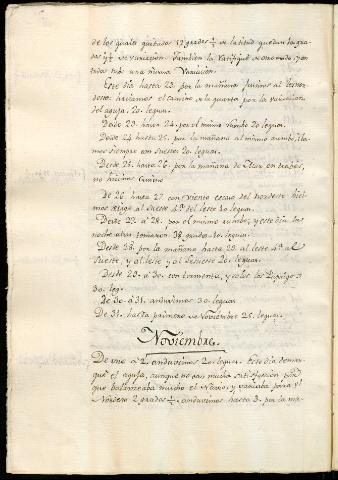 de los quales quitados 17 grados ½ de latitud quedan los gra-
dos y ½ de variacion. Tambien la
tados una misma Variacion.
Este dia hasta 23 por la mañana fuimos al Lesnor-
deste: hariamos el camino a la quarta por la variacion
del aguja. 20. leguas.
Desde 23. hasta 24. por el mismo rumbo 20 leguas.
Desde 24 hasta 25. por la mañana al mismo rumbo,
siempre con Sueste: 20. leguas.
Desde 25. hasta 26. por la mañana de
no hicimos Camino
De 26. hasta 27. con Viento escaso del nordeste hici-
mos al Sueste 4ª del leste 10. leguas.
Desde 27. á 28. por el mismo rumbo, y este dia la
noche atras tomaron 38. grados. 10. leguas.
Desde 28. por la mañana hasta 29. al leste 4ª al
Sueste, y al leste y al Lesueste 20. leguas.
Desde 29. á 30. con tramonta, y
30. leg.
De 30. á 31. anduvimos 30. leguas.
De 31. hasta primero de Noviembre 25. leguas.
Noviembre.
De uno a 2. anduvimos 20. leguas. Este dia demar-
qué el aguja, aunque no con mucha satisfaccion por
que balanceaba mucho el Navio, y variaba para el
Nordeste 2 grados ½. anduvimos hasta 3. por la ma-